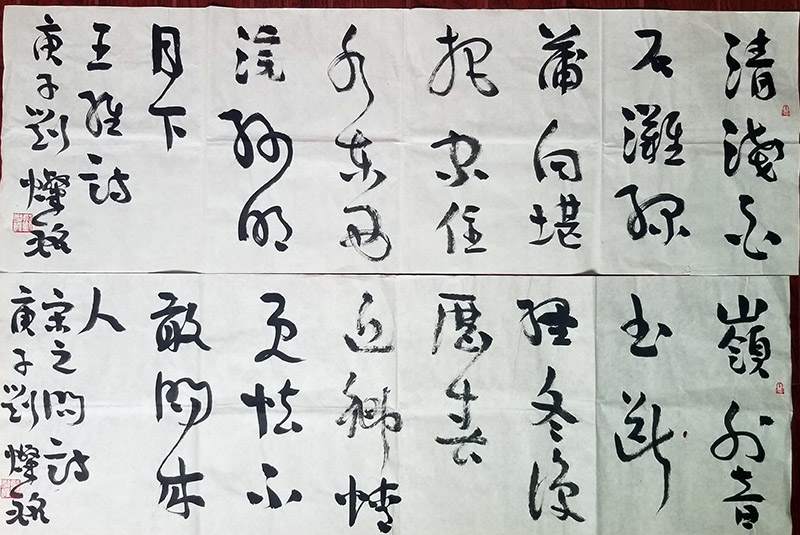 清淺白
石灘綠
蒲向堪
把家住
水東西
浣紗明
月下
王維詩
庚子劉燦銘
嶺外音
書斷
經冬復
歷春
近鄉情
更怯不
敢問來
人
宋之問詩
庚子劉燦銘